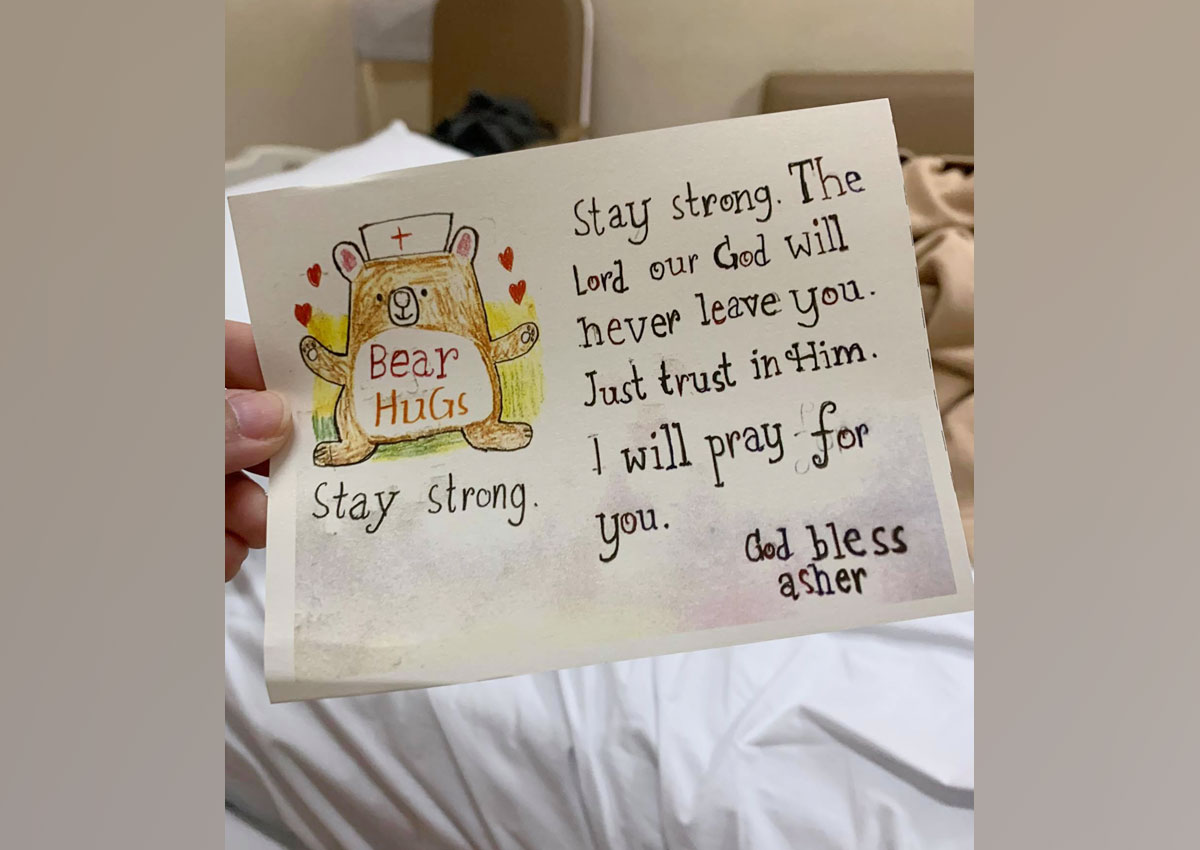 Bear
HuGs
Stay strong.
Stay strong. The
Lord our God will
never leave you.
Just trust in Him.
I will pray for
you.
God bless
asher